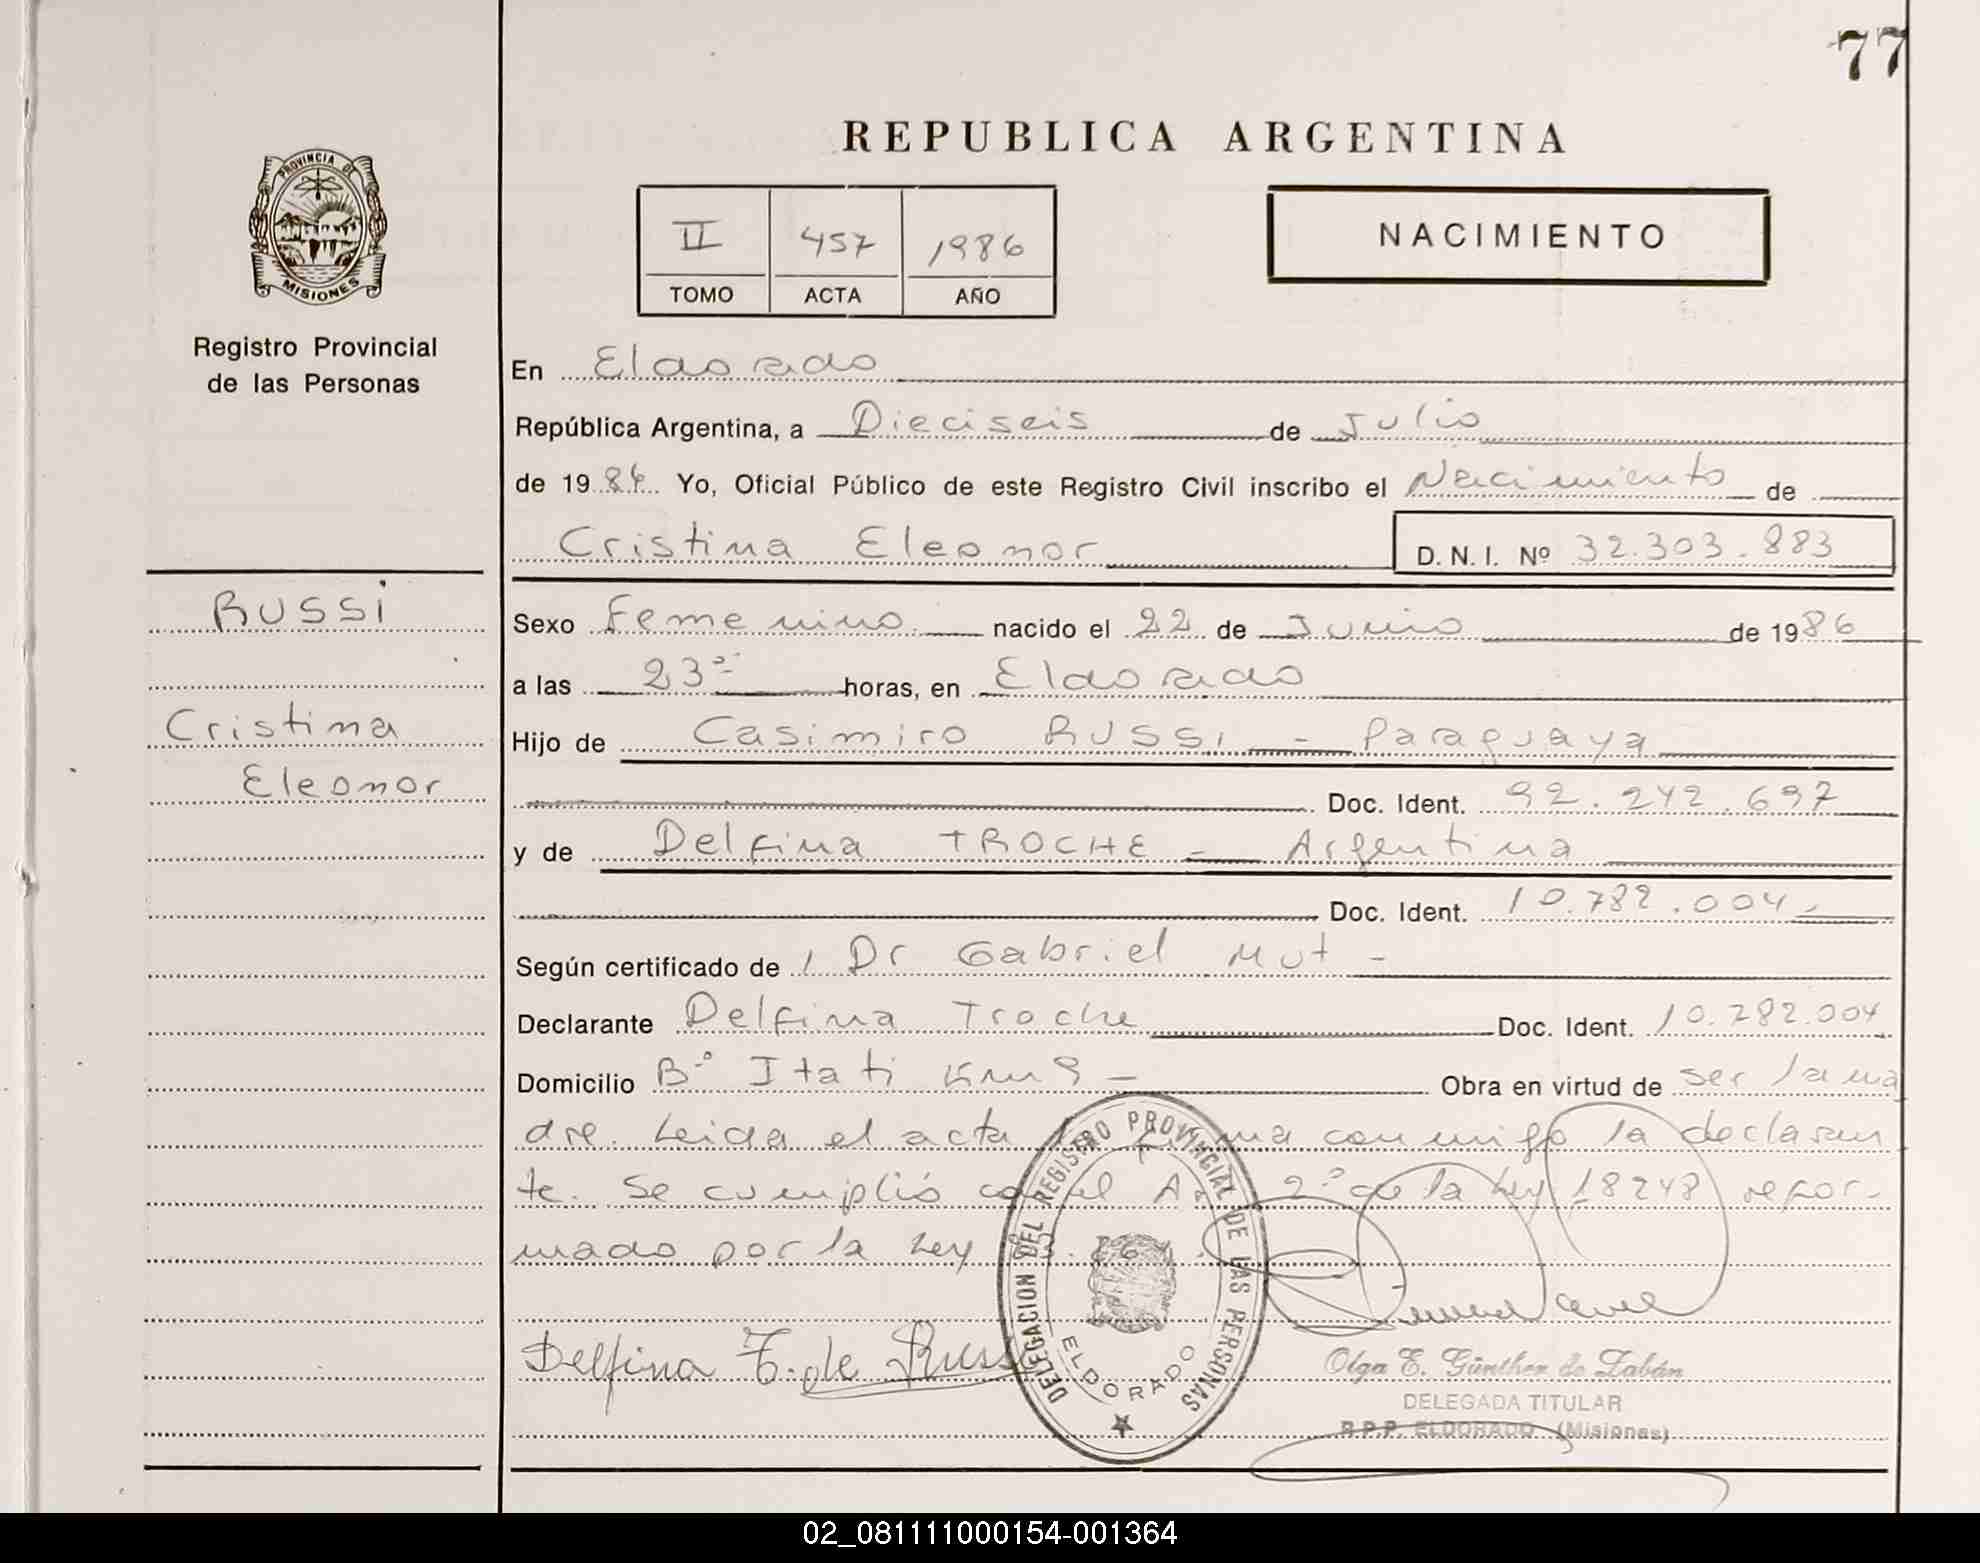 77
REPUBLICA ARGENTINA
PROVINCIA DE
MISIONES
Registro Provincial
de las Personas
II 457 1986
TOMO ACTA AÑO
NACIMIENTO
En Eldorado
República Argentina, a Dieciseis de Julio
de 1986. Yo, Oficial Público de este Registro Civil inscribo el Nacimiento de
Cristina Eleonor D. N. I. Nº 32.303.883
RUSSI
Cristina
Eleonor
Sexo Femenino. nacido el 22 de Junio de 1986
a las 23 horas, en Eldorado
Hijo de Casimiro RUSSI - Paraguaya
Doc. Ident. 92.242.697
y de Delfina TROCHE - Argentina
Doc. Ident. 10.782.004.-
Según certificado de Dr Gabriel Mut -
Declarante Delfina Troche Doc. Ident. 10.782.004
Domicilio Bº Itati Km 9 - Obra en virtud de ser la ma
dre. Leida el acta la firma conmigo la declaran
te. Se cumplió con el Art. 2º de la Ley 18248 refor-
mado por la Ley
Delfina T. de Russi
DELEGACION DEL REGISTRO PROVINCIAL DE LAS PERSONAS
ELDORADO
Olga E. Günther de Zabán
DELEGADA TITULAR
R.P.P. ELDORADO (Misiones)
02_081111000154-001364